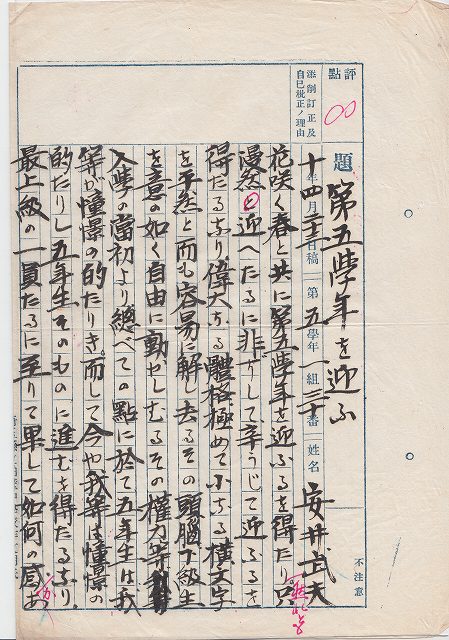 評點
添削訂正及
自己批正ノ理由
題 第五學年を迎ふ
十年四月二十三日稿 第五學年一組三十番 姓名 安井武夫
不注意
花咲く春と共に第五學年を迎ふるを得たり只
漫然と迎へたるに非ずして辛うじて迎ふるを
得たるなり 偉大なる體格極めて小なる横文字
を平然と而も容易に解し去るその頭腦下級生
を意の如く自由に動かしむるその權力等
入學の當初より總べての點に於て五年生は我
等が憧憬の的たりき。而して今や我等は憧憬の
的たりし五年生そのものに進むを得たるなり
最上級の一員たるに至りて果して如何の感あ